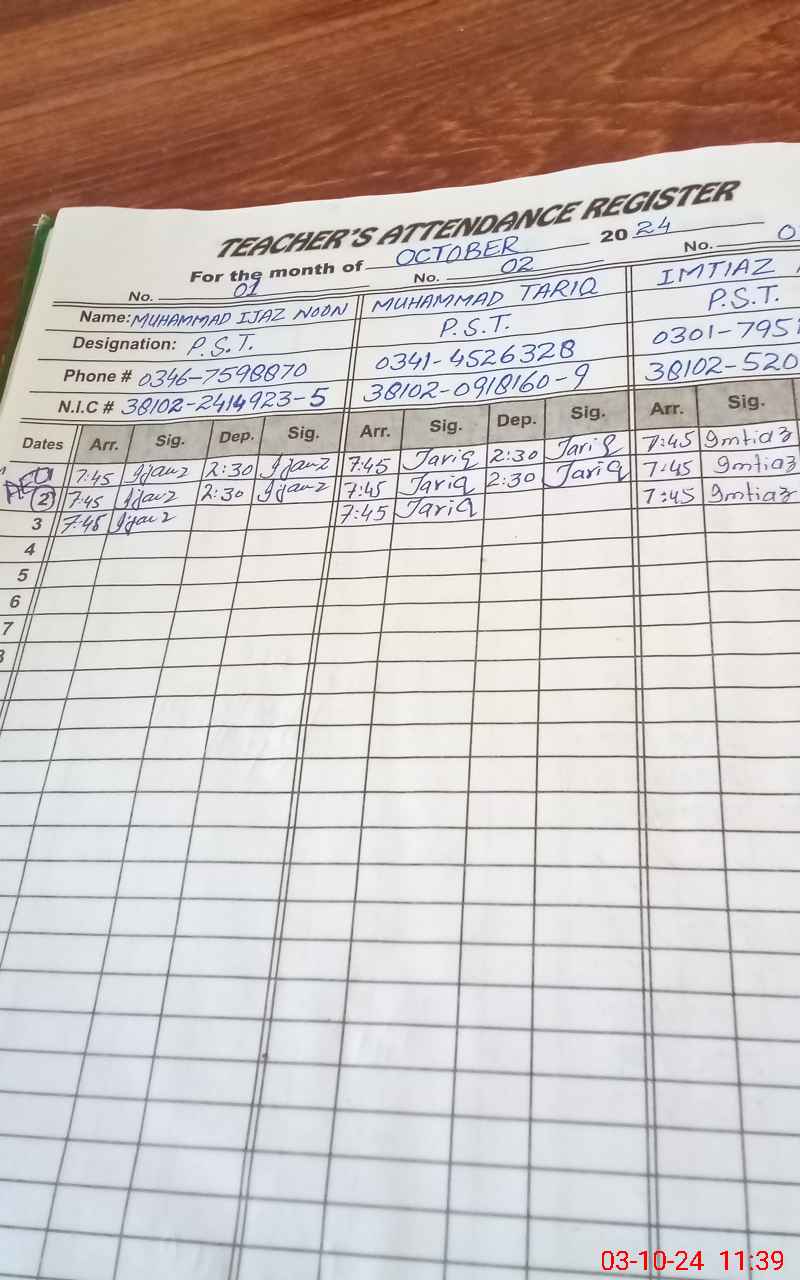 TEACHER'S ATTENDANCE REGISTER
For the month of OCTOBER 20 24
No. 01 No. 02 No. 0
Name: MUHAMMAD IJAZ NOON MUHAMMAD TARIQ IMTIAZ
Designation: P.S.T. P.S.T. P.S.T.
Phone # 0346-7598870 0341-4526328 0301-795
N.I.C # 38102-2414923-5 38102-0918160-9 38102-520
Dates Arr. Sig. Dep. Sig. Arr. Sig. Dep. Sig. Arr. Sig.
7:45 Ijauz 2:30 Ijauz 7:45 Tariq 2:30 Tariq 7:45 Imtiaz
2 7:45 Ijauz 2:30 Ijauz 7:45 Tariq 2:30 Tariq 7:45 Imtiaz
3 7:45 Ijauz 7:45 Tariq 7:45 Imtiaz
4
5
6
7
03-10-24 11:39